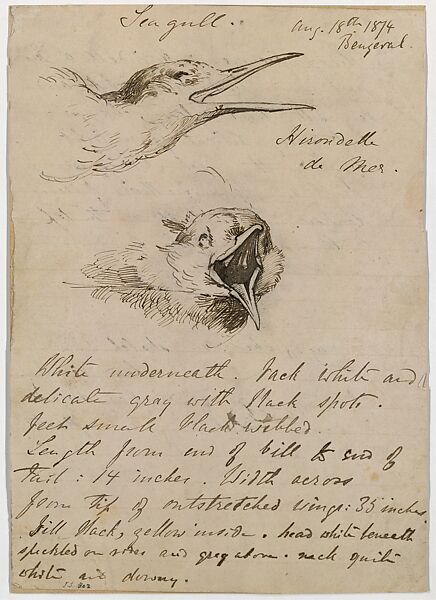 Sea gull.
Aug. 18th 1874
Benzeval.
Hirondelle
de Mer.
White underneath. Back white and
delicate gray with black spots.
feet small black webbed.
Length from end of bill to end of
tail: 14 inches. Width across
from tip of outstretched wings: 35 inches
Bill black, yellow inside. head white beneath
speckled on sides and gray above. neck quite
white and downy.